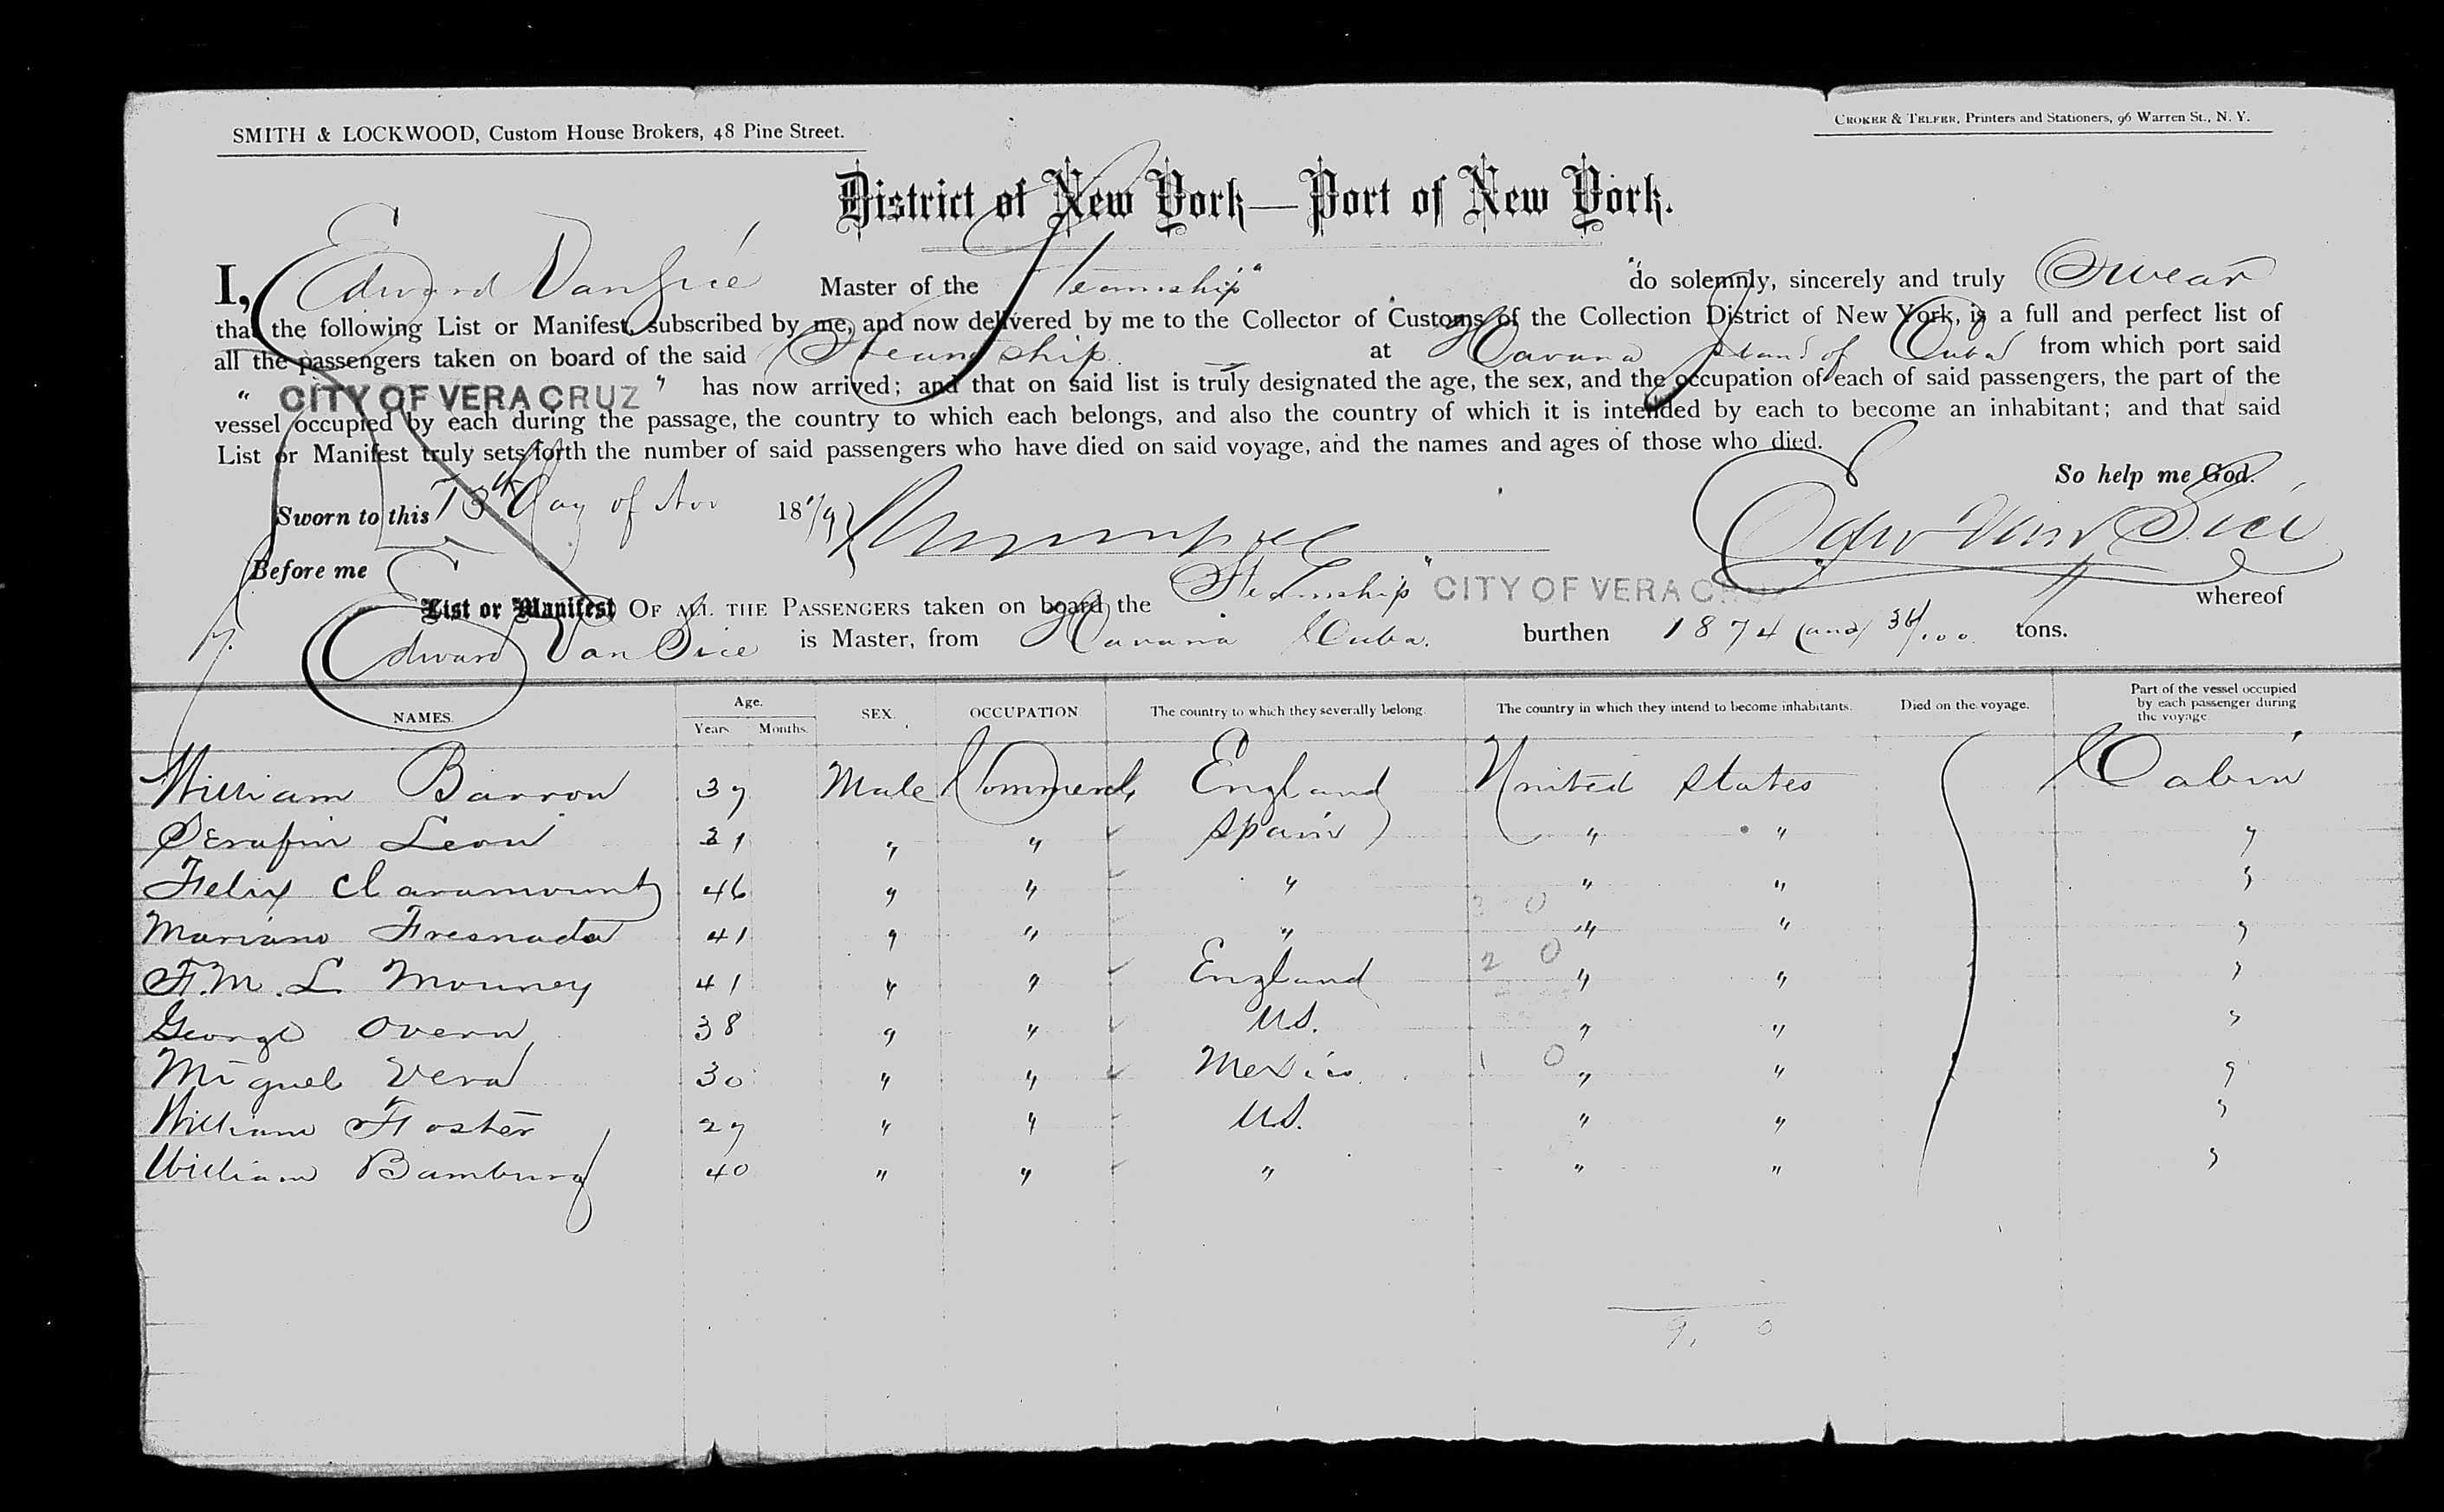 SMITH & LOCKWOOD, Custom House Brokers, 48 Pine Street.
CROKER & TELFER, Printers and Stationers, 96 Warren St., N. Y.
District of New York—Port of New York.
I, Edward Van Sice Master of the Steamship " " do solemnly, sincerely and truly Swear
that the following List or Manifest, subscribed by me, and now delivered by me to the Collector of Customs of the Collection District of New York, is a full and perfect list of
all the passengers taken on board of the said Steamship at Havana Island of Cuba from which port said
" CITY OF VERA CRUZ " has now arrived; and that on said list is truly designated the age, the sex, and the occupation of each of said passengers, the part of the
vessel occupied by each during the passage, the country to which each belongs, and also the country of which it is intended by each to become an inhabitant; and that said
List or Manifest truly sets forth the number of said passengers who have died on said voyage, and the names and ages of those who died.
So help me God.
Sworn to this 13th Day of Nov 1879
Edw Van Sice
Before me
List or Manifest OF ALL THE PASSENGERS taken on board the Steamship " CITY OF VERA CRUZ whereof
Edward Van Sice is Master, from Havana Cuba. burthen 1874 (and) 34/100 tons.
NAMES. Age. Years. Months. SEX. OCCUPATION The country to which they severally belong. The country in which they intend to become inhabitants. Died on the voyage. Part of the vessel occupied by each passenger during the voyage.
William Barron 37 Male Commercl England United States Cabin
Serafin Leon 31 " " Spain " " "
Felix Claramount 46 " " " " " "
Mariano Fresnada 41 " " " " " "
F. M. L. Mouney 41 " " England " " "
George Overn 38 " " U.S. " " "
Miguel Vera 30 " " Mexico " " "
William Foster 27 " " U.S. " " "
William Bamburg 40 " " " " " "
3 0
2 0
1 0
9, 0